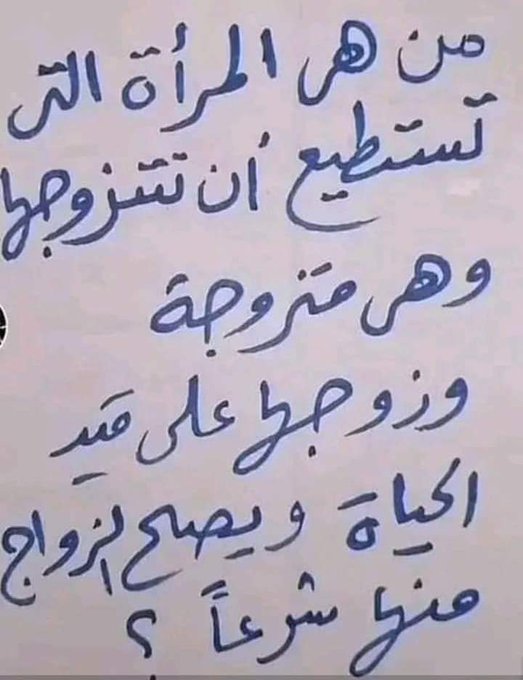 من هى المرأة التى
تستطيع أن تتزوجها
وهى متزوجة
وزوجها على قيد
الحياة ويصلح الزواج
منها شرعاً ؟